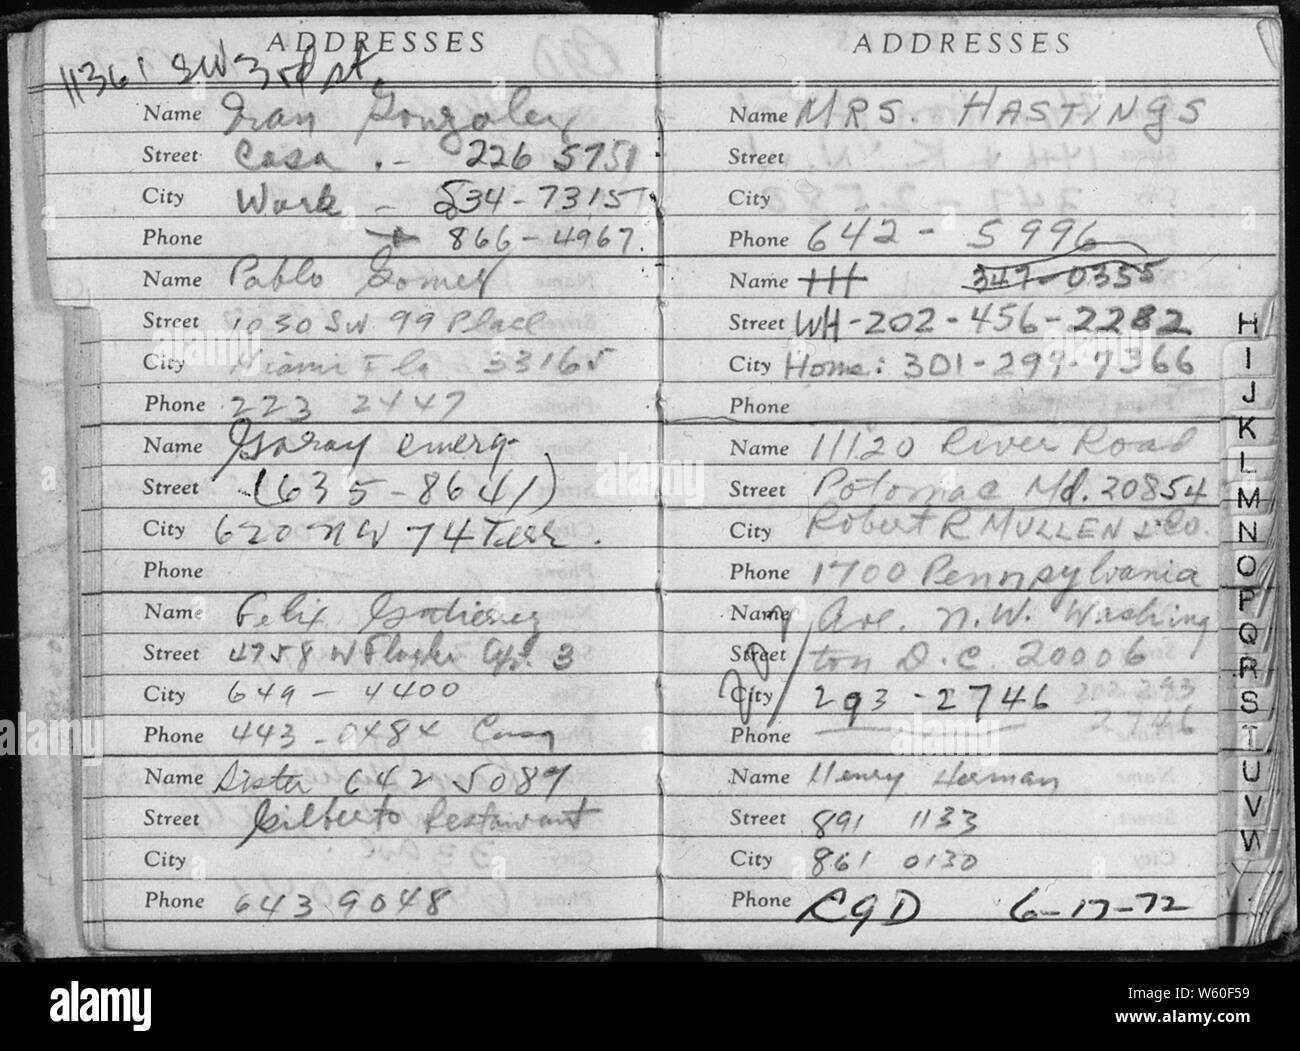 ADDRESSES
11361 SW 3rd st
Name Iran Gonzalez
Street Casa . - 226 5751
City Work - 534-7315
Phone 866-4967.
Name Pablo Gomez
Street 1030 SW 99 Place
City Miami Fla 33165
Phone 223 2447
Name Garay emerg-
Street (635-8641)
City 620 NW 74 Terr.
Phone
Name Felix Gutierrez
Street 4758 W Flagler Apt. 3
City 649-4400
Phone 443-0484 Casa
Name Sister 642 5089
Street Gilberto Restaurant
City
Phone 643 9048
ADDRESSES
Name MRS. HASTINGS
Street
City
Phone 642-5996
Name HH 347-0355
Street WH-202-456-2282
City Home: 301-299-7366
Phone
Name 11120 River Road
Street Potomac Md. 20854
City Robert R MULLEN & Co.
Phone 1700 Pennsylvania
Name Ave. N.W. Washing
Street ton D.C. 20006
City 293-2746 202 293
Phone 2746
Name Henry Herman
Street 891 1133
City 861 0130
Phone RGD 6-17-72
H
I
J
K
L
M
N
O
P
Q
R
S
T
U
V
W
Y
alamy
www.alamy.com
Image ID: W60F59